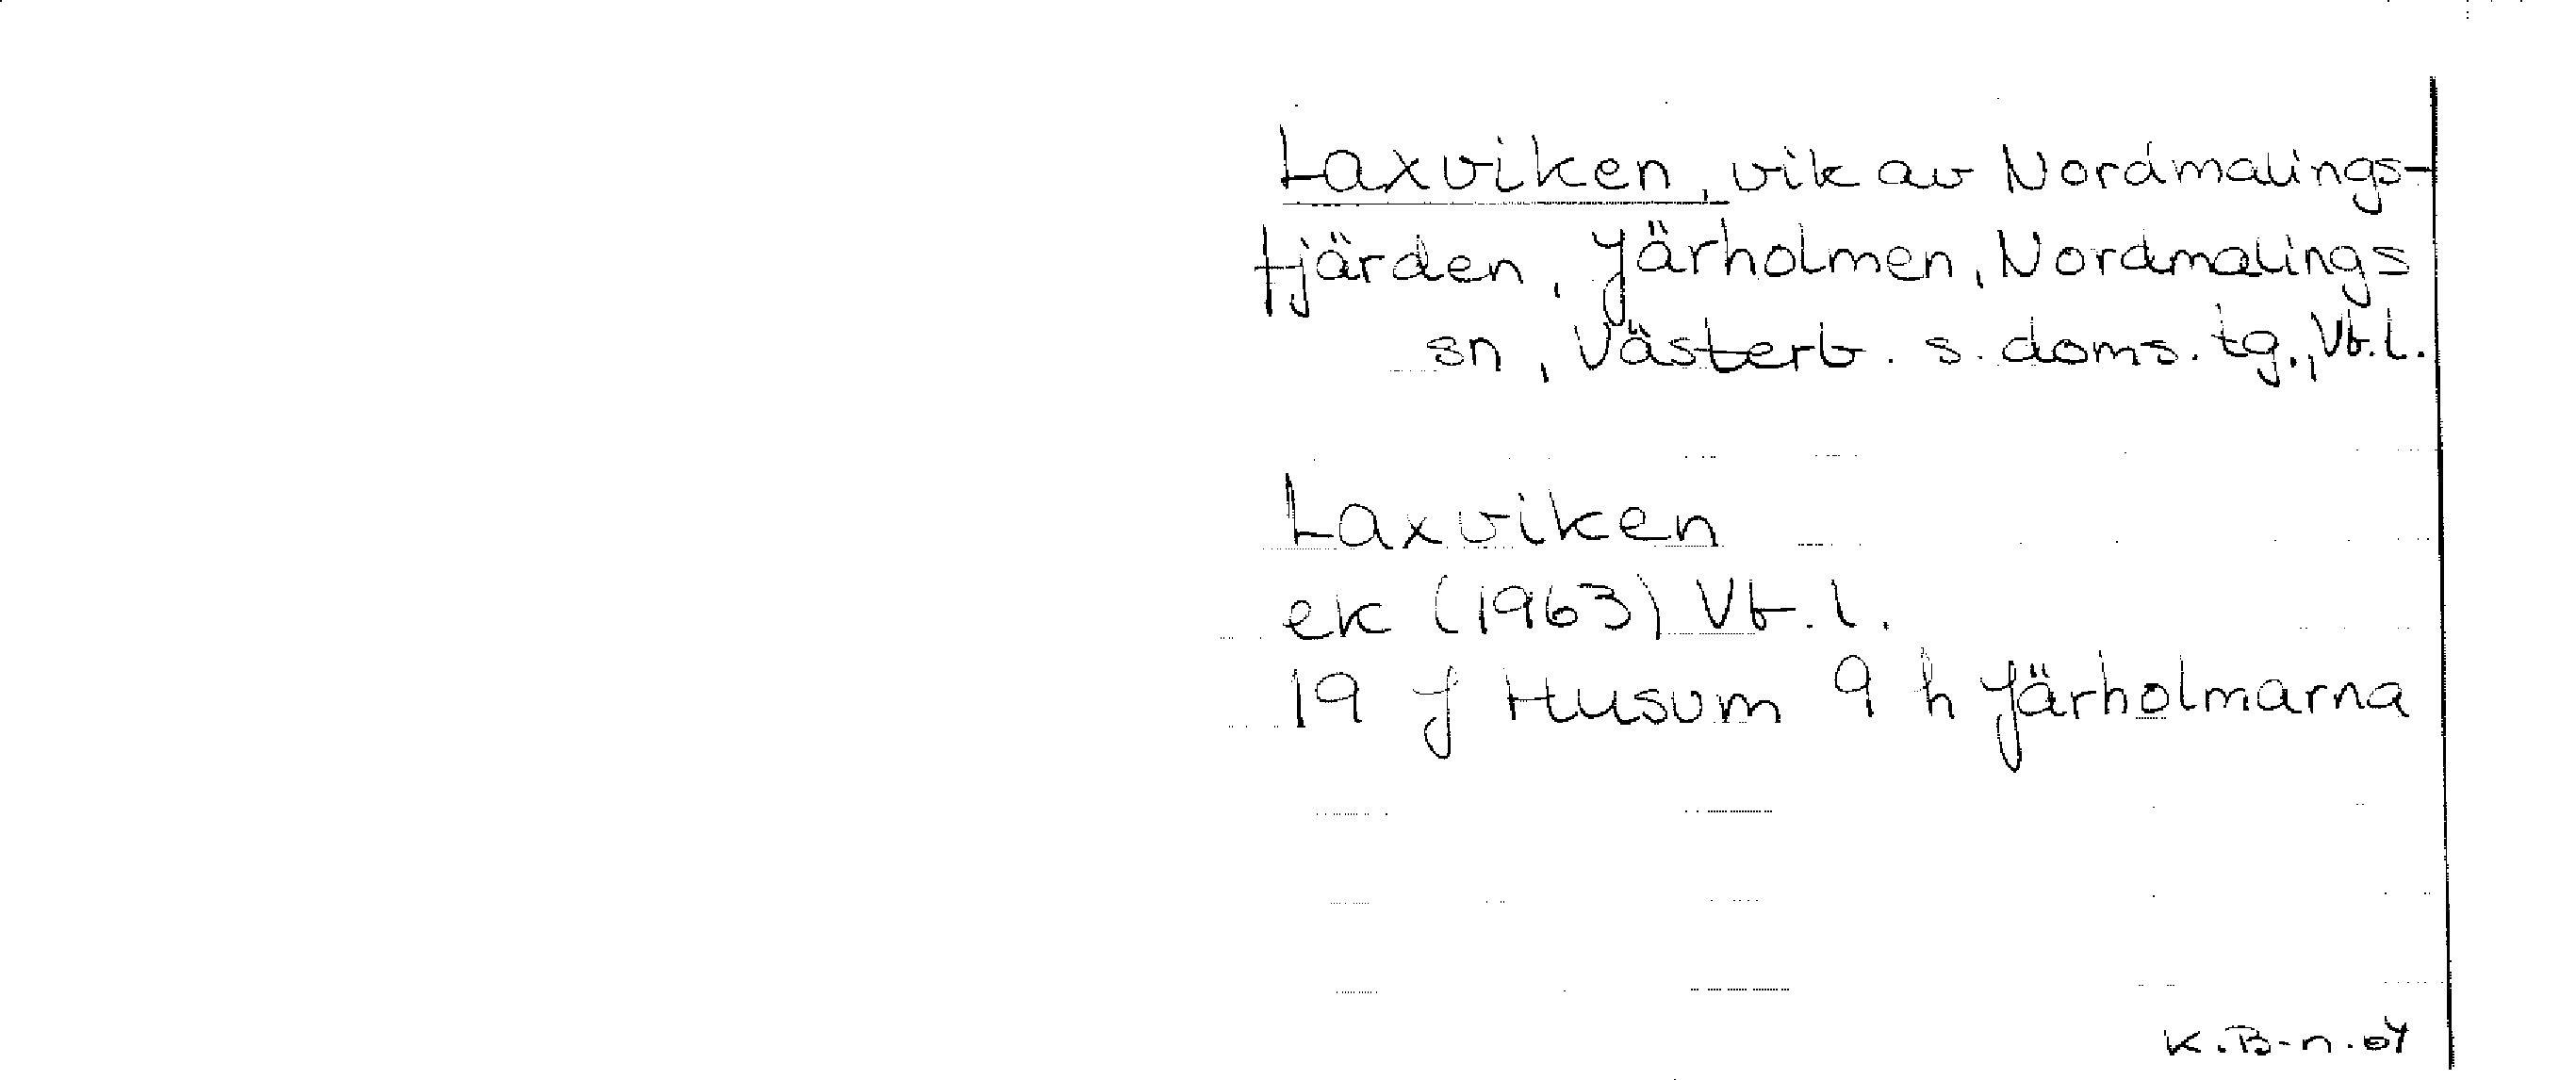 Laxviken, vik av Nordmalings-
fjärden, Järholmen, Nordmalings
sn, Västerb. s. doms. tg., Vb.l.
Laxviken
ek (1963) Vb.l.
19 J Husum 9 h Järholmarna
K.B-n.